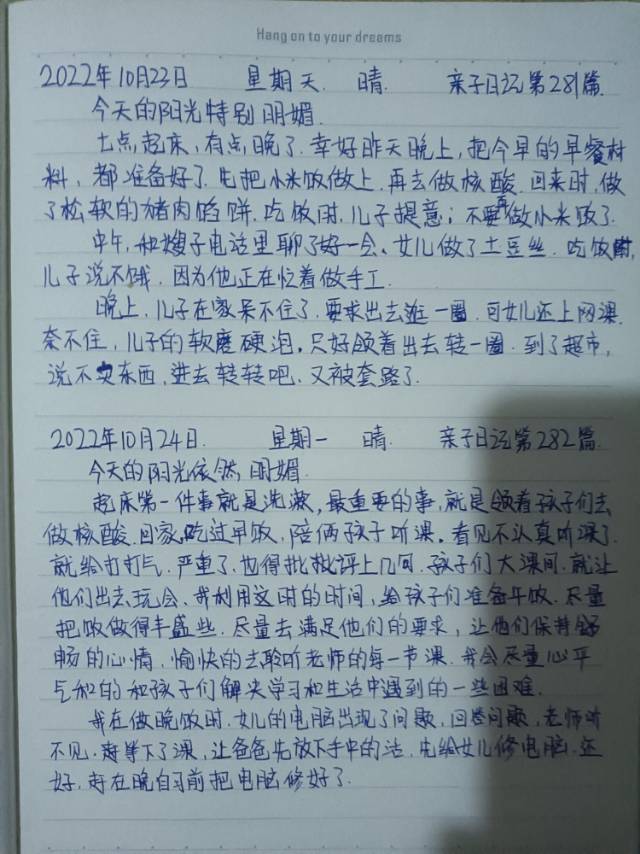 Hang on to your dreams
2022年10月23日 星期天 晴 亲子日记第281篇
今天的阳光特别明媚.
七点起床,有点晚了.幸好昨天晚上,把今早的早餐材
料,都准备好了.先把小米饭做上,再去做核酸.回来时,做
了松软的猪肉馅饼.吃饭时,儿子提意;不要再做小米饭了.
中午,和嫂子电话里聊了好一会、女儿做了土豆丝.吃饭时,
儿子说不饿.因为他正在忙着做手工.
晚上,儿子在家呆不住了.要求出去逛一圈.可女儿还上网课.
奈不住,儿子的软磨硬泡.只好领着出去转一圈.到了超市,
说不买东西,进去转转吧.又被套路了.
2022年10月24日. 星期一 晴. 亲子日记第282篇.
今天的阳光依然明媚.
起床第一件事就是洗漱,最重要的事,就是领着孩子们去
做核酸.回家,吃过早饭,陪俩孩子听课.看见不认真听课了.
就给打打气.严重了.也得批批评上几句.孩子们大课间.就让
他们出去玩会、我利用这时的时间,给孩子们准备午饭.尽量
把饭做得丰盛些.尽量去满足他们的要求,让他们保持舒
畅的心情,愉快的去聆听老师的每一节课.我会尽量心平
气和的和孩子们解决学习和生活中遇到的一些困难.
我在做晚饭时.女儿的电脑出现了问题,回答问题,老师听
不见.等下了课,让爸爸先放下手中的活.先给女儿修电脑.还
好.赶在晚自习前把电脑修好了.